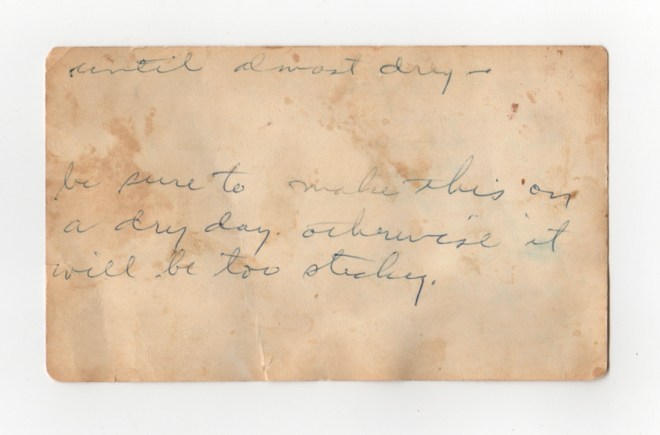 until almost dry -
be sure to make this on
a dry day. otherwise it
will be too sticky.